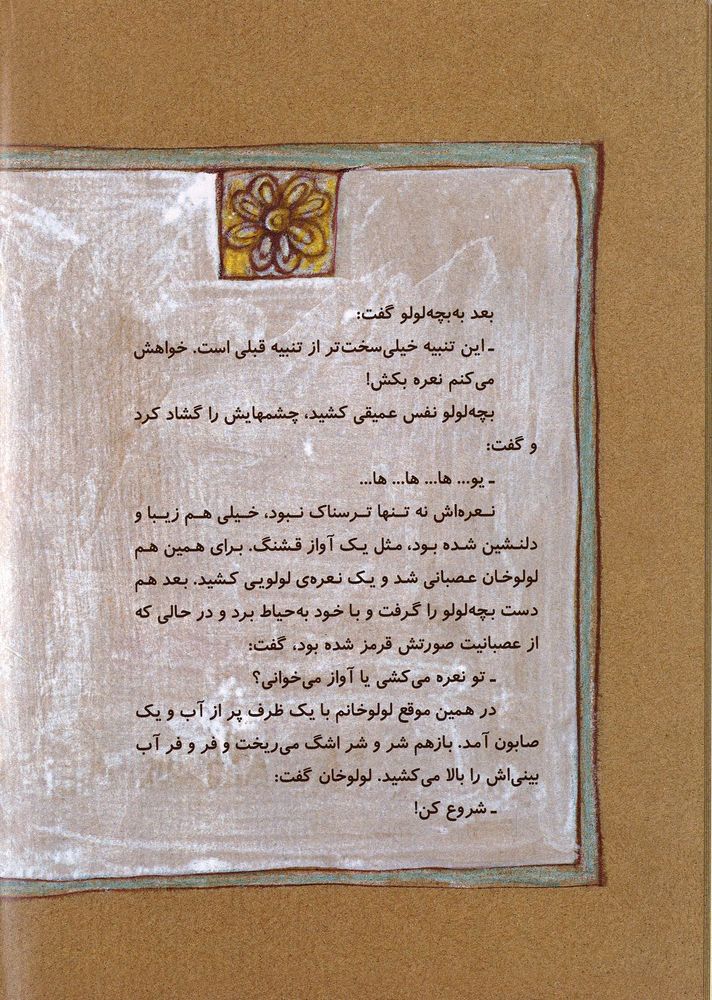 بعد به‌بچه‌لولو گفت:
ـ این تنبیه خیلی‌سخت‌تر از تنبیه قبلی است. خواهش
می‌کنم نعره بکش!
بچه‌لولو نفس عمیقی کشید، چشمهایش را گشاد کرد
و گفت:
ـ یو... ها... ها... ها...
نعره‌اش نه تنها ترسناک نبود، خیلی هم زیبا و
دلنشین شده بود، مثل یک آواز قشنگ. برای همین هم
لولوخان عصبانی شد و یک نعره‌ی لولویی کشید. بعد هم
دست بچه‌لولو را گرفت و با خود به‌حیاط برد و در حالی که
از عصبانیت صورتش قرمز شده بود، گفت:
ـ تو نعره می‌کشی یا آواز می‌خوانی؟
در همین موقع لولوخانم با یک ظرف پر از آب و یک
صابون آمد. بازهم شر و شر اشگ می‌ریخت و فر و فر آب
بینی‌اش را بالا می‌کشید. لولوخان گفت:
ـ شروع کن!